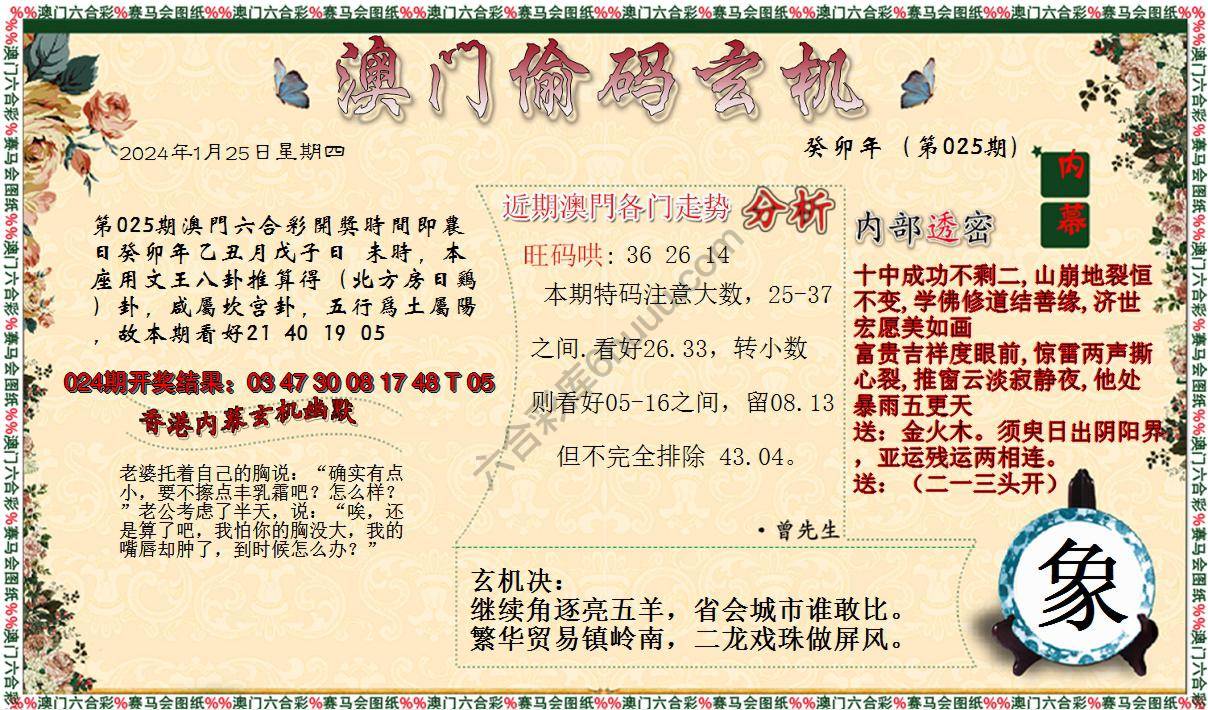 %%澳门六合彩%赛马会图纸%%澳门六合彩%赛马会图纸%%澳门六合彩%赛马会图纸%%澳门六合彩%赛马会图纸%%澳门六合彩%赛马会图纸%%澳门六合彩%赛马会图纸%%
澳门偷码玄机
2024年1月25日星期四
癸卯年（第025期）
内
幕
第025期澳門六合彩開獎時間即農
日癸卯年乙丑月戊子日 未時，本
座用文王八卦推算得（北方房日鷄
）卦，咸屬坎宫卦，五行爲土屬陽
，故本期看好21 40 19 05
024期开奖结果：03 47 30 08 17 48 T 05
香港内幕玄机幽默
老婆托着自己的胸说：“确实有点
小，要不擦点丰乳霜吧？怎么样？
”老公考虑了半天，说：“唉，还
是算了吧，我怕你的胸没大，我的
嘴唇却肿了，到时候怎么办？”
近期澳門各门走势 分析
旺码哄: 36 26 14
本期特码注意大数，25-37
之间.看好26.33，转小数
则看好05-16之间，留08.13
但不完全排除 43.04。
·曾先生
内部透密
十中成功不剩二,山崩地裂恒
不变,学佛修道结善缘,济世
宏愿美如画
富贵吉祥度眼前,惊雷两声撕
心裂,推窗云淡寂静夜,他处
暴雨五更天
送：金火木。须臾日出阴阳界
，亚运残运两相连。
送：（二一三头开）
玄机决：
继续角逐亮五羊，省会城市谁敢比。
繁华贸易镇岭南，二龙戏珠做屏风。
象
六合彩库6huuu.com
%%澳门六合彩%赛马会图纸%%澳门六合彩%赛马会图纸%%澳门六合彩%赛马会图纸%%澳门六合彩%赛马会图纸%%澳门六合彩%赛马会图纸%%澳门六合彩%赛马会图纸%%